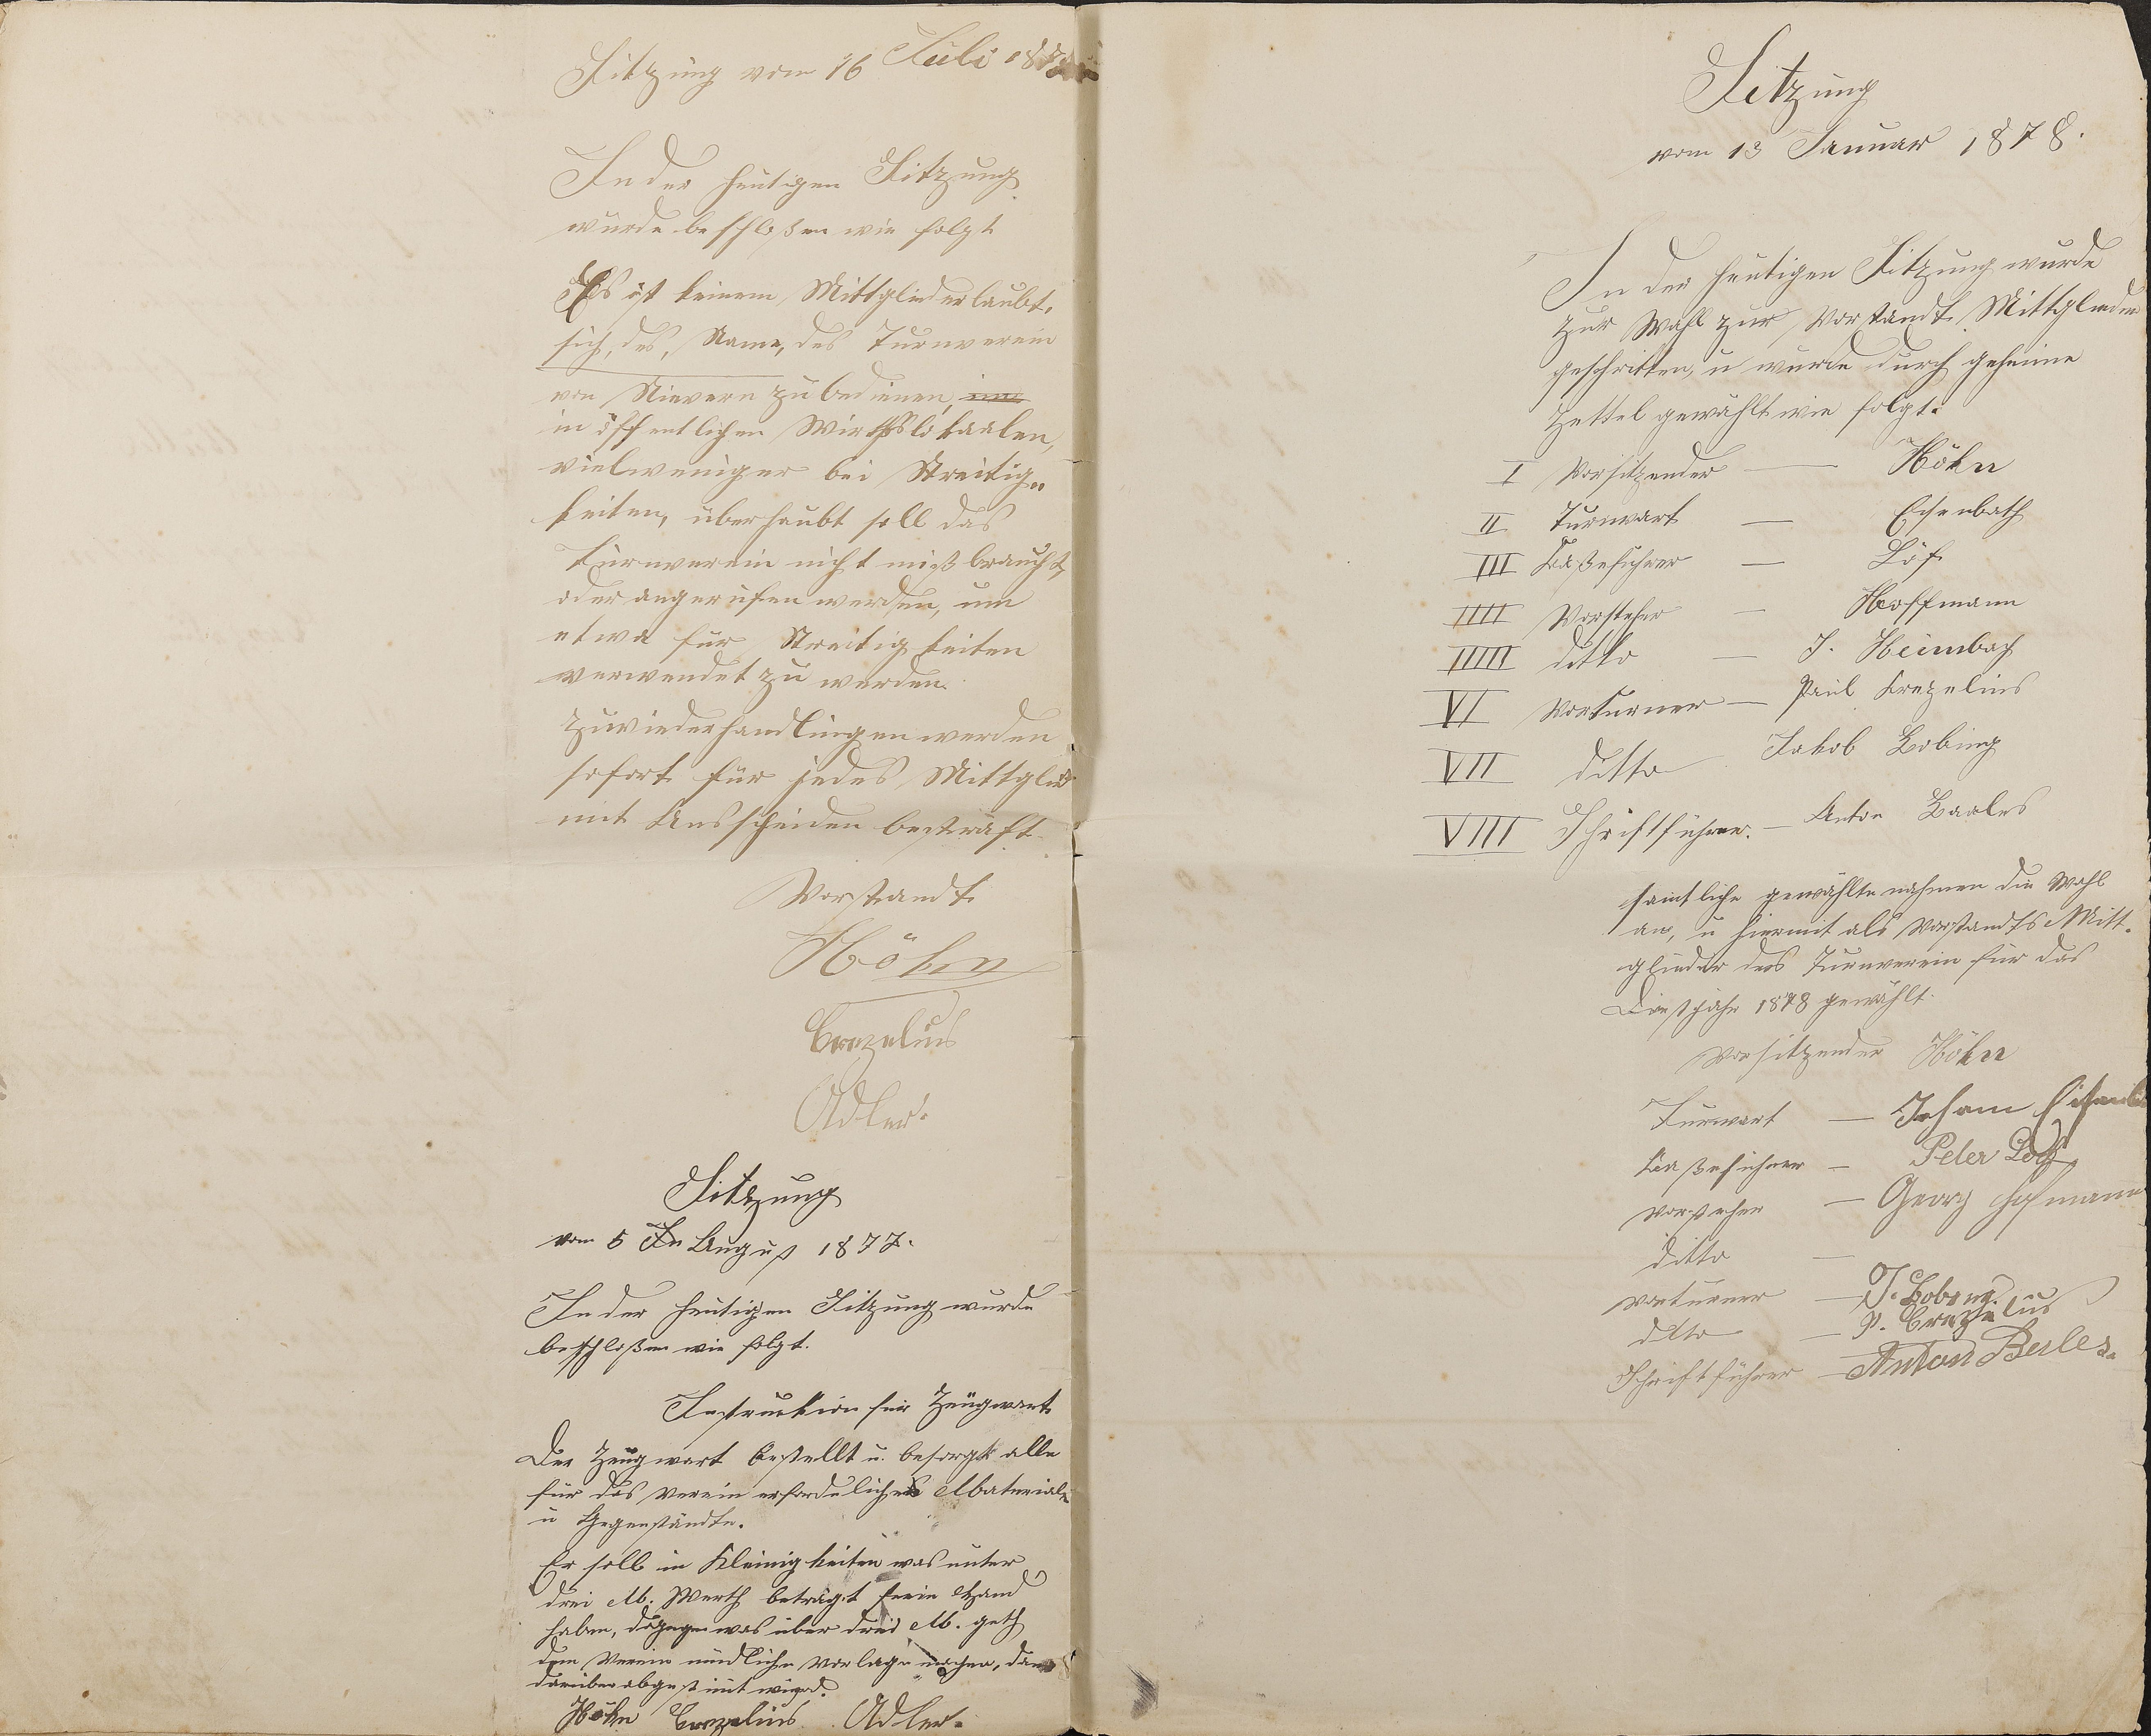 Sitzung vom 16 Juli 187
In der heutigen Sitzung
wurde beschloßen wie folgt
Es ist keinem Mittglied erlaubt.
sich, des, Name, des Turnverein
von Nievern zu bedienen,
in öffentlichen Wirthslokaalen,
vielweniger bei Streitig„
keiten, überhaubt soll das
Turnverein nicht mißbraucht,
oder angerufen werden, um
etwa für Streitigkeiten
verwendet zu werden.
Zuwiederhandlungen werden
sofort für jedes Mittglied
mit Ausscheiden bestraft.
Vorstandt.
Höhn
Crezelius
Adler.
Sitzung
vom 5 August 1877.
In der heutigen Sitzung wurde
beschloßen wie folgt.
Instruktion für Zeugwart
Der Zeugwart bestellt u. besorgt alle
für das Verein erforderliches Material
u Gegenstände.
Er soll in Kleinigkeiten was unter
drei M. Werth beträgt freie Hand
haben, dagegen was über drei M. geth
dem Verein mündliche Vorlage machen, dann
darüber abgestimt wird.
Höhn Crezelius Adler.
Sitzung
vom 13 Januar 1878.
In der heutigen Sitzung wurde
zur Wahl zur Vorstandt. Mittglieder
geschritten, u wurde durch geheime
Zettel gewählt wie folgt.
I Vorsitzender — Höhn
II Turnwart — Eisenbath
III Kaßeführer — Löf
IIII Vorsteher — Hoffmann
IIIII ditto — J. Heimbach
VI Vorturner — Paul Krezelius
VII ditto Jakob Bobing
VIII Schriftführer. — Anton Baales
samtliche gewählte nahmen die Wahl
an, u hiermit als Vorstandts Mitt.
glieder des Turnverein für das
Dinstjahr 1878 gewählt.
Vorsitzender Höhn
Turnwart — Johann
Kaßeführer — Peter Löf
Vorsteher — Georg Hofmann
ditto —
Vorturner — J. Bobing
ditto — P. Crezelius
Schriftführer — Anton Berles.